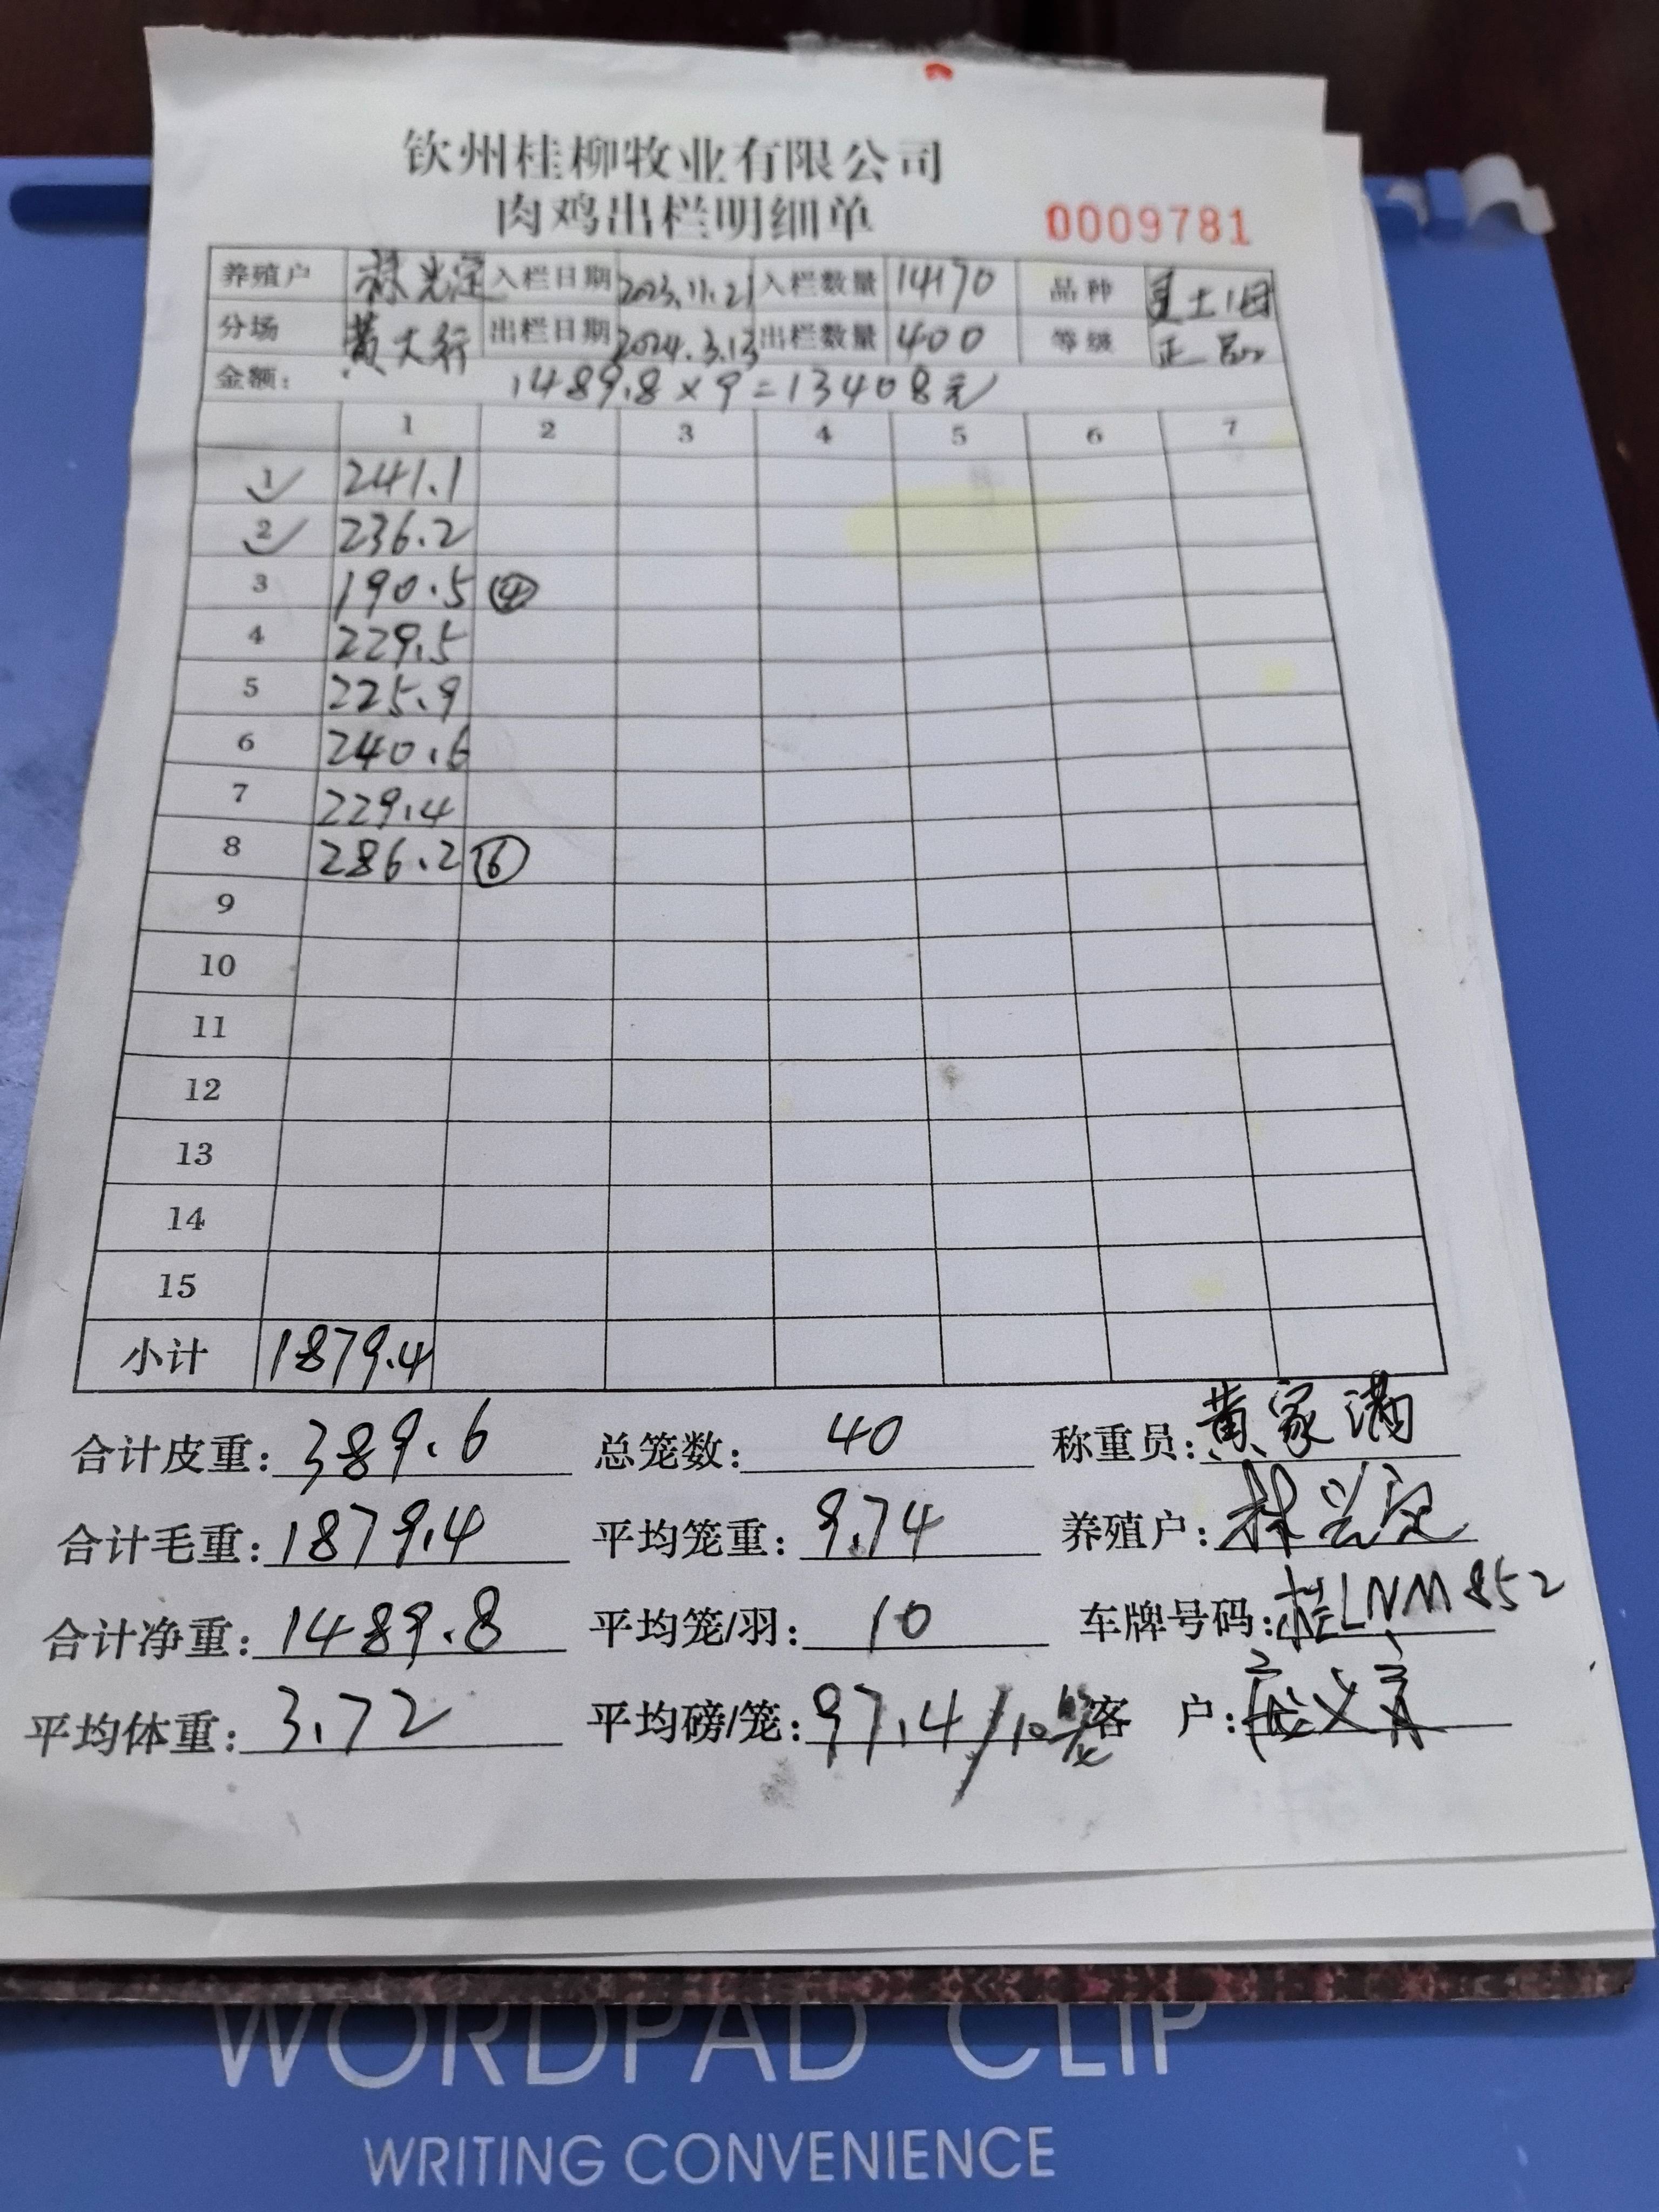 钦州桂柳牧业有限公司
肉鸡出栏明细单 0009781
养殖户 林光定 入栏日期 2023.11.21 入栏数量 14170 品种 土1母
分场 黄大行 出栏日期 2024.3.13 出栏数量 400 等级 正品
金额: 1489.8×9=13408元
1 2 3 4 5 6 7
1 241.1
2 236.2
3 190.5 ④
4 229.5
5 225.9
6 240.6
7 229.4
8 286.2 ⑥
9
10
11
12
13
14
15
小计 1879.4
合计皮重: 389.6 总笼数: 40 称重员: 黄家满
合计毛重: 1879.4 平均笼重: 9.74 养殖户: 林光定
合计净重: 1489.8 平均笼/羽: 10 车牌号码: 桂LNM852
平均体重: 3.72 平均磅/笼: 97.4/10笼 客 户:
WORDPAD CLIP
WRITING CONVENIENCE